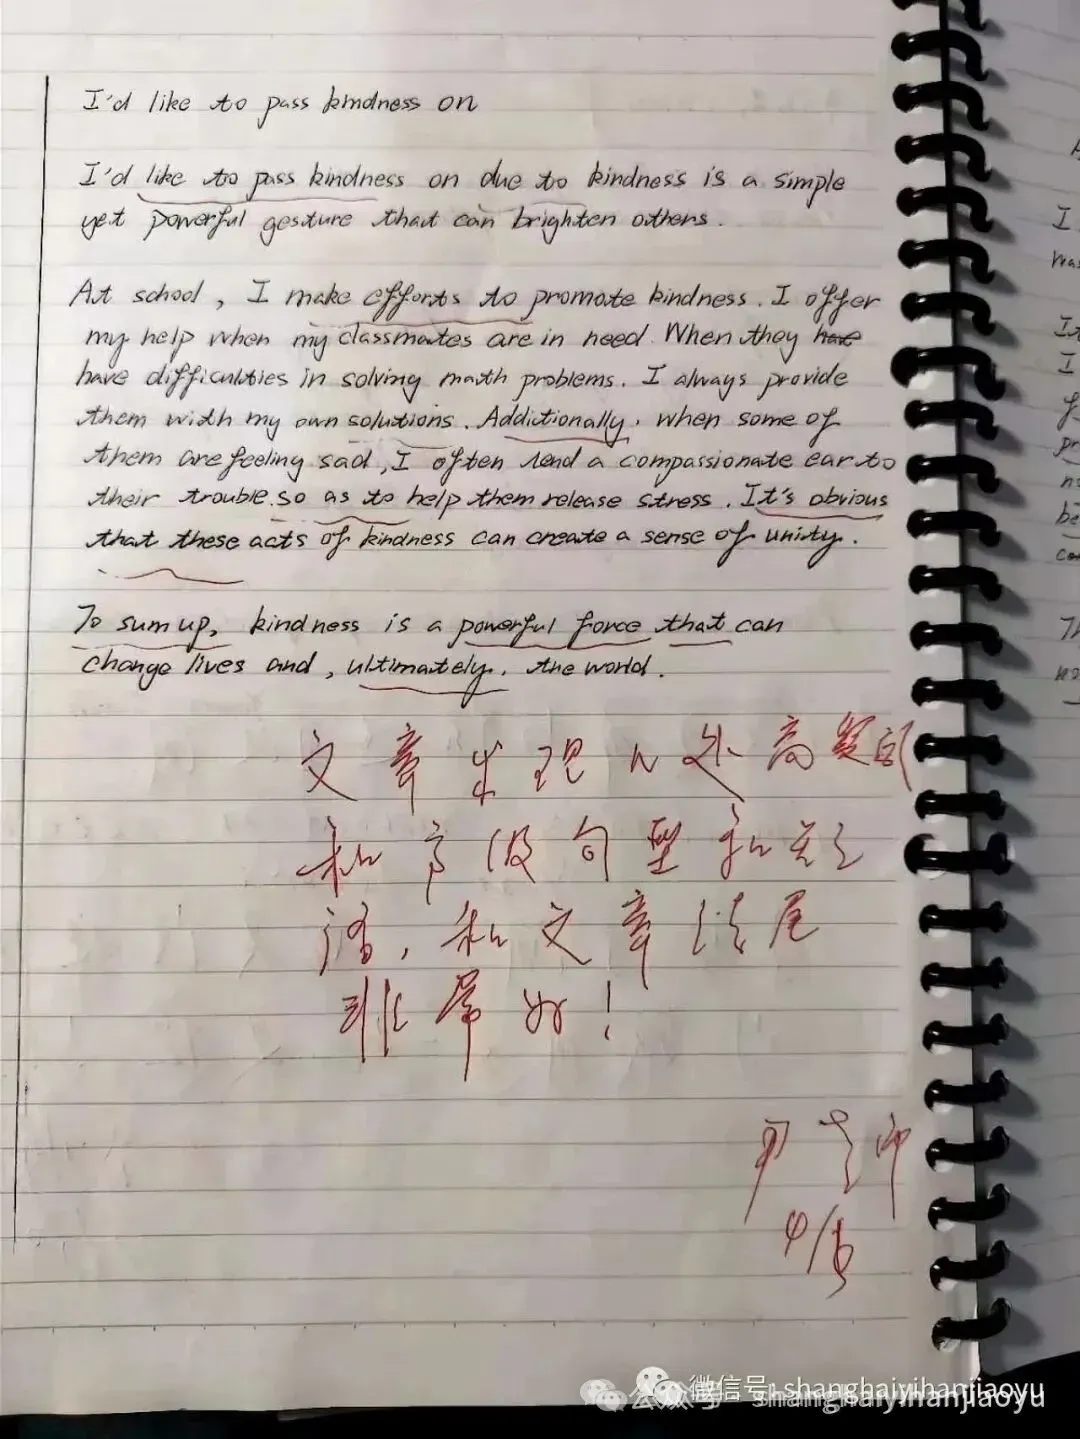 I'd like to pass kindness on
I'd like to pass kindness on due to kindness is a simple
yet powerful gesture that can brighten others.
At school, I make efforts to promote kindness. I offer
my help when my classmates are in need. When they have
have difficulties in solving math problems. I always provide
them with my own solutions. Addictionally, when some of
them are feeling sad, I often lend a compassionate ear to
their trouble. so as to help them release stress. It's obvious
that these acts of kindness can create a sense of unity.
To sum up, kindness is a powerful force that can
change lives and, ultimately, the world.
文章出现 处高级的
和高级句型和关
和文章结尾
非常好!
尹老师
4/5
微信号: shanghaiyihanjiaoyu
公众号 shanghaiyihanjiaoyu
I